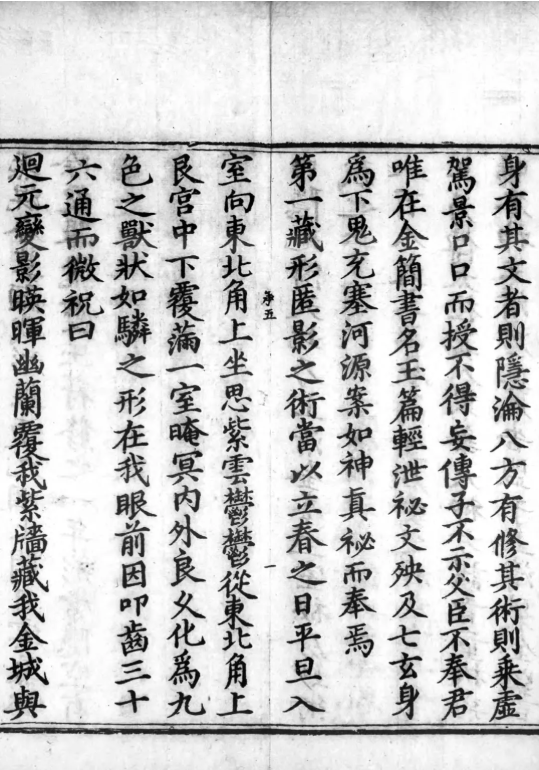 身有其文者則隱淪八方有修其術則乘虛
駕景口口而授不得妄傳子不示父臣不奉君
唯在金簡書名玉篇輕泄祕文殃及七玄身
為下鬼充塞河源案如神真祕而奉焉
第一藏形匿影之術當以立春之日平旦入
室向東北角上坐思紫雲鬱鬱從東北角上
艮宮中下覆滿一室晻冥內外良久化為九
色之獸狀如驎之形在我眼前因叩齒三十
六通而微祝曰
廻元變影暎暉幽蘭覆我紫牆藏我金城與
弟五
一